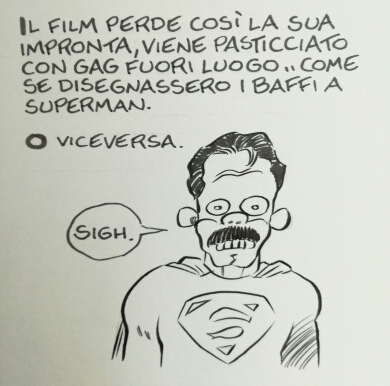 IL FILM PERDE COSÌ LA SUA
IMPRONTA, VIENE PASTICCIATO
CON GAG FUORI LUOGO.. COME
SE DISEGNASSERO I BAFFI A
SUPERMAN.
O VICEVERSA.
SIGH.
S